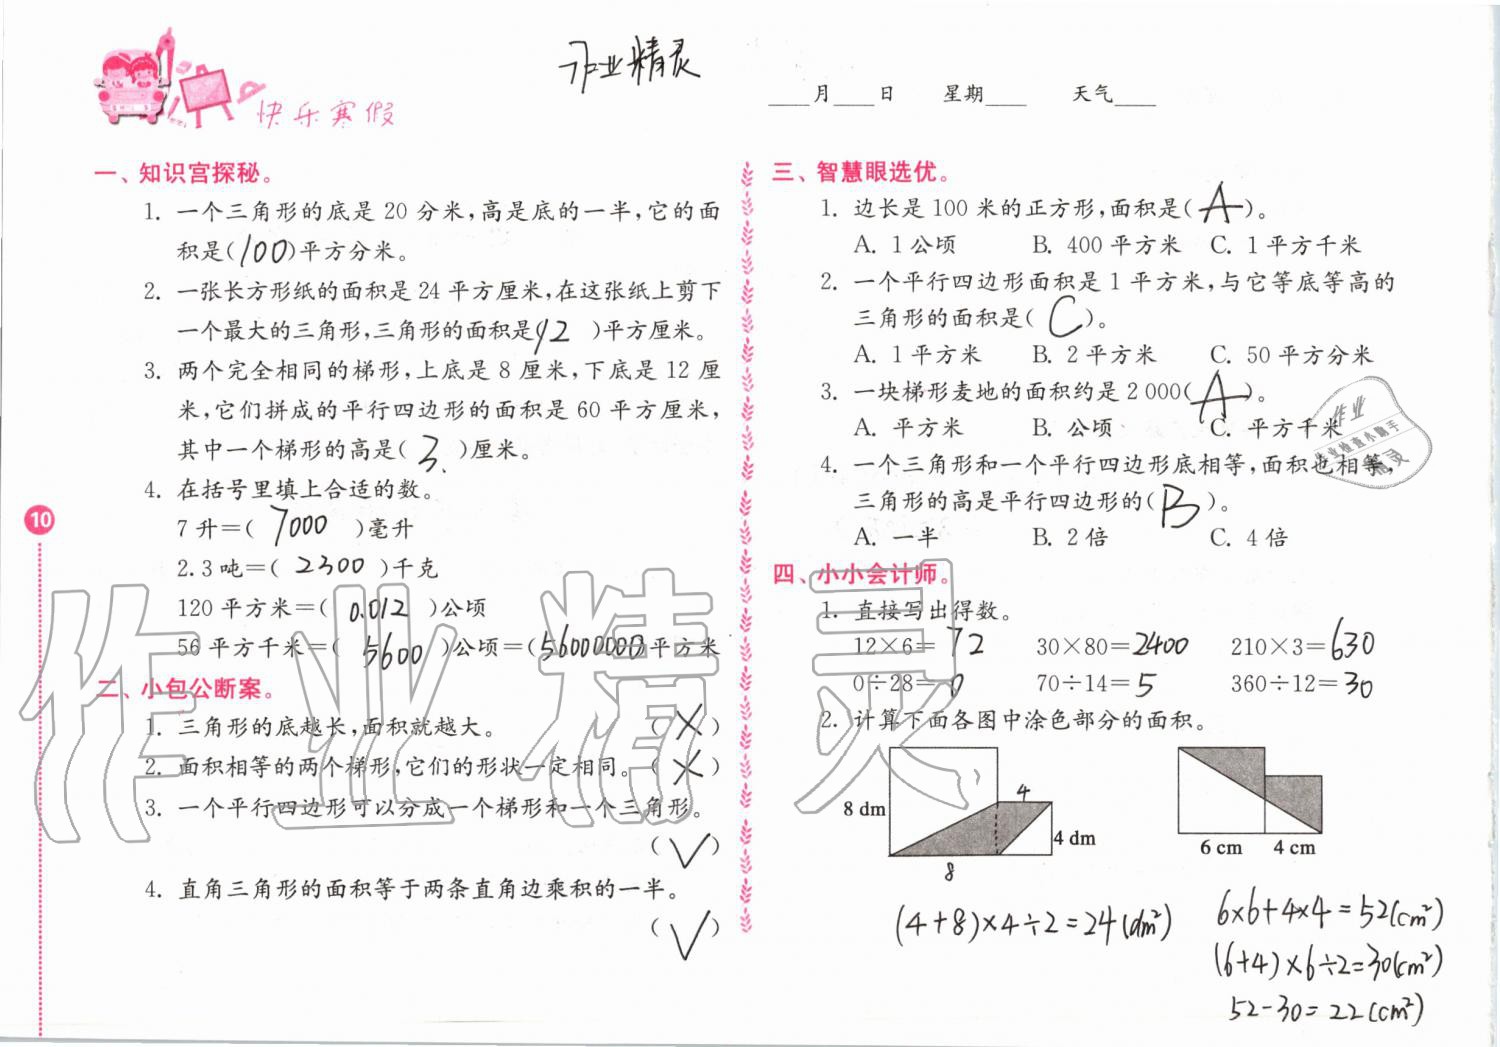 作业精灵
快乐寒假
____月____日 星期____ 天气____
一、知识宫探秘。
1. 一个三角形的底是 20 分米,高是底的一半,它的面
积是(100)平方分米。
2. 一张长方形纸的面积是 24 平方厘米,在这张纸上剪下
一个最大的三角形,三角形的面积是(12)平方厘米。
3. 两个完全相同的梯形,上底是 8 厘米,下底是 12 厘
米,它们拼成的平行四边形的面积是 60 平方厘米,
其中一个梯形的高是(3)厘米。
4. 在括号里填上合适的数。
7 升=(7000)毫升
2.3 吨=(2300)千克
120 平方米=(0.012)公顷
56 平方千米=(5600)公顷=(56000000)平方米
二、小包公断案。
1. 三角形的底越长,面积就越大。 (×)
2. 面积相等的两个梯形,它们的形状一定相同。 (×)
3. 一个平行四边形可以分成一个梯形和一个三角形。
(√)
4. 直角三角形的面积等于两条直角边乘积的一半。
(√)
10
三、智慧眼选优。
1. 边长是 100 米的正方形,面积是(A)。
A. 1 公顷 B. 400 平方米 C. 1 平方千米
2. 一个平行四边形面积是 1 平方米,与它等底等高的
三角形的面积是(C)。
A. 1 平方米 B. 2 平方米 C. 50 平方分米
3. 一块梯形麦地的面积约是 2 000(A)。
A. 平方米 B. 公顷 C. 平方千米
4. 一个三角形和一个平行四边形底相等,面积也相等,
三角形的高是平行四边形的(B)。
A. 一半 B. 2 倍 C. 4 倍
四、小小会计师。
1. 直接写出得数。
12×6=72 30×80=2400 210×3=630
0÷28=0 70÷14=5 360÷12=30
2. 计算下面各图中涂色部分的面积。
4
8 dm
4 dm
8
6 cm 4 cm
(4+8)×4÷2=24(dm²)
6×6+4×4=52(cm²)
(6+4)×6÷2=30(cm²)
52-30=22(cm²)
作业精灵